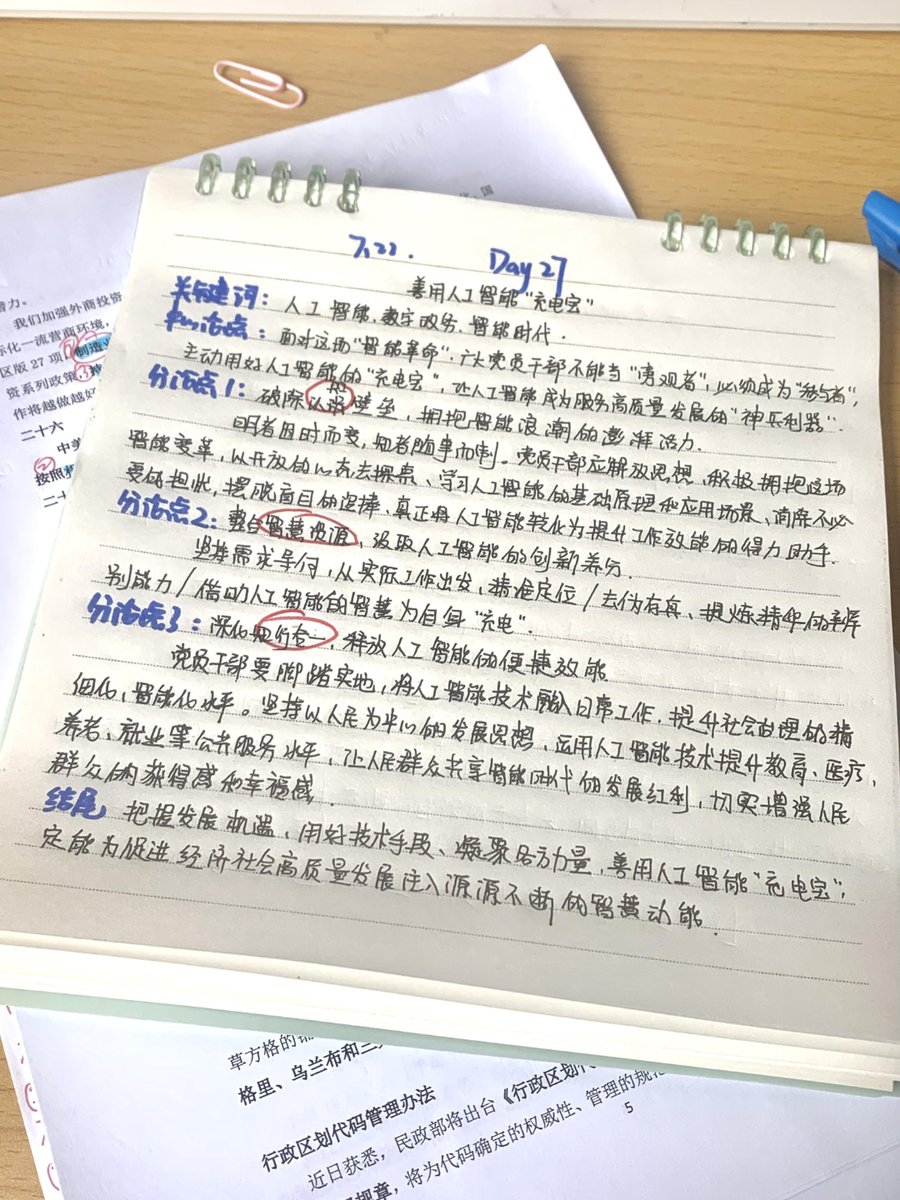 7.22. Day 27
善用人工智能"充电宝"
关键词：人工智能、数字政务、智能时代.
中心论点：面对这场"智能革命"，广大党员干部不能当"旁观者"，必须成为"参与者"，
主动用好人工智能的"充电宝"，让人工智能成为服务高质量发展的"神兵利器".
分论点1：破除认知壁垒，拥抱智能浪潮的澎湃活力.
明者因时而变，知者随事而制。党员干部应解放思想、积极拥抱这场
智能变革，以开放的心态去探索、学习人工智能的基础原理和应用场景、消除不必
要的担忧，摆脱盲目的选择，真正将人工智能转化为提升工作效能的得力助手.
分论点2：整合智慧资源，汲取人工智能的创新养分.
坚持需求导向，从实际工作出发，精准定位/去伪存真、提炼精华的辨
别能力/借助人工智能的智慧为自身"充电".
分论点3：深化知行合一，释放人工智能的便捷效能
党员干部要脚踏实地，将人工智能技术融入日常工作，提升社会治理的精
细化、智能化水平。坚持以人民为中心的发展思想，运用人工智能技术提升教育、医疗，
养老、就业等公共服务水平，让人民群众共享智能时代的发展红利，切实增强人民
群众的获得感和幸福感.
结尾 把握发展机遇，用好技术手段、凝聚各方力量，善用人工智能"充电宝"，
定能为促进经济社会高质量发展注入源源不断的智慧动能.
潜力。
我们加强外商投资
际化一流营商环境，
区版27项 ① 制造
资系列政策 ③
作将越做越好
二十六
中美
② 按照
二十
草方格的
格里、乌兰布和三
行政区划代码管理办法
近日获悉，民政部将出台《行政区划代
规章，将为代码确定的权威性、管理的规范
5